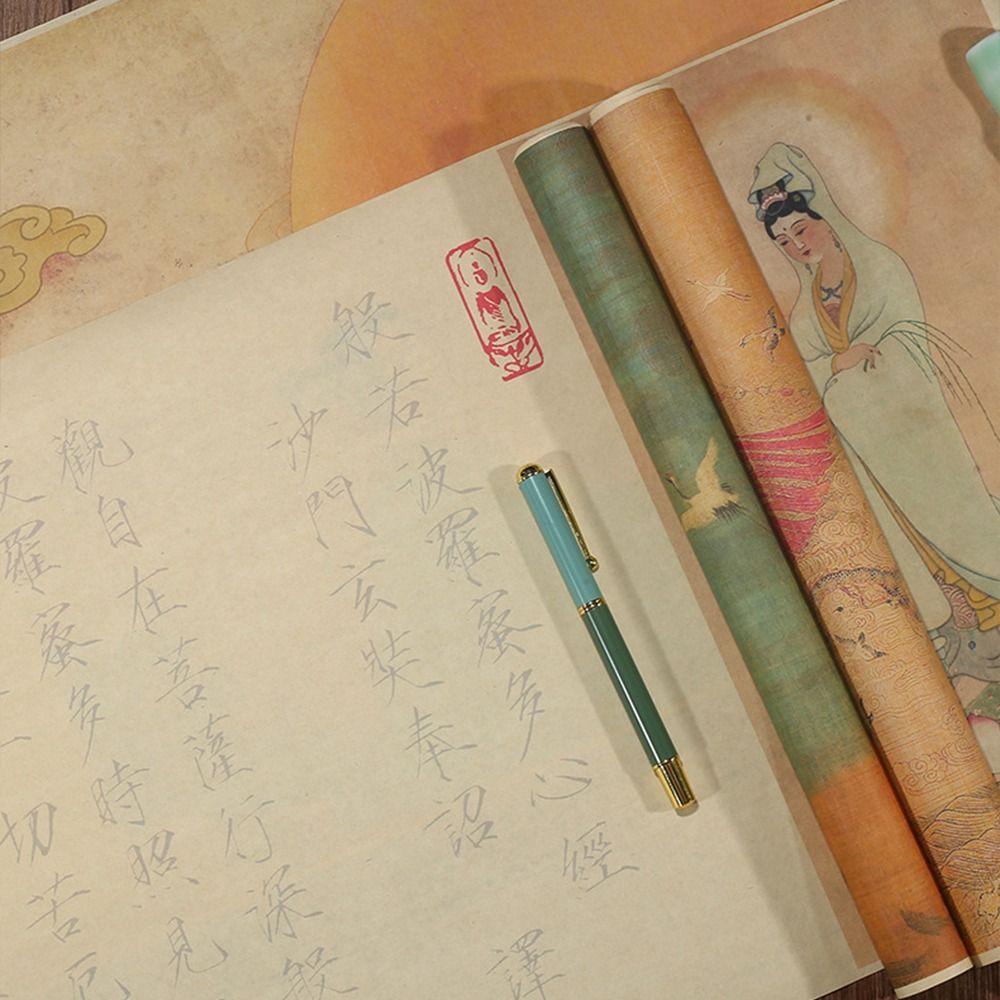 般若波羅蜜多心經
沙門玄奘奉詔譯
觀自在菩薩行深般
波羅蜜多時照見
一切苦厄